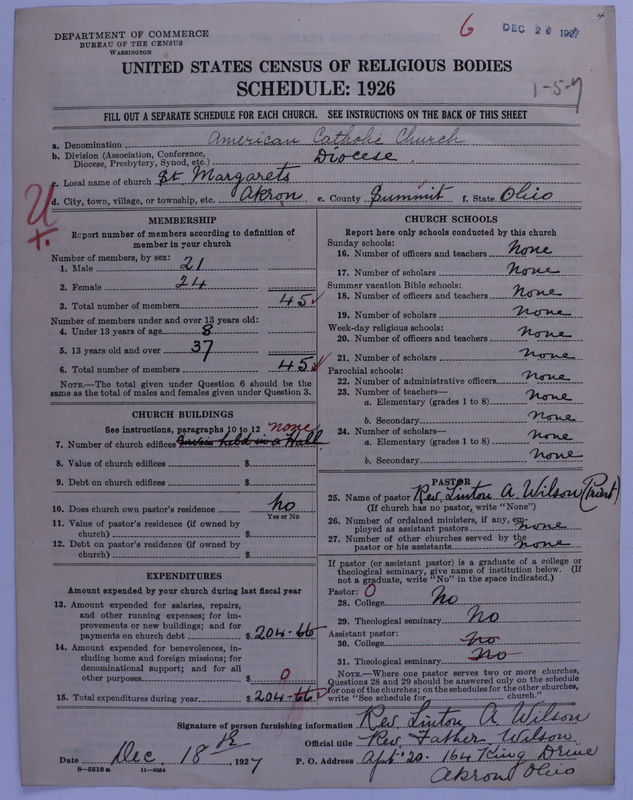 DEPARTMENT OF COMMERCE
BUREAU OF THE CENSUS
WASHINGTON
6
DEC 20 1927
UNITED STATES CENSUS OF RELIGIOUS BODIES
SCHEDULE: 1926
1-5-7
FILL OUT A SEPARATE SCHEDULE FOR EACH CHURCH. SEE INSTRUCTIONS ON THE BACK OF THIS SHEET
a. Denomination American Catholic Church
b. Division (Association, Conference, Diocese, Presbytery, Synod, etc.) Diocese
c. Local name of church St Margarets
d. City, town, village, or township, etc. Akron e. County Summit f. State Ohio
MEMBERSHIP
Report number of members according to definition of
member in your church
Number of members, by sex:
1. Male 21
2. Female 24
3. Total number of members 45
Number of members under and over 13 years old:
4. Under 13 years of age 8
5. 13 years old and over 37
6. Total number of members 45
NOTE.—The total given under Question 6 should be the
same as the total of males and females given under Question 3.
CHURCH BUILDINGS
See instructions, paragraphs 10 to 12 none
7. Number of church edifices Service held in a Hall
8. Value of church edifices $
9. Debt on church edifices $
10. Does church own pastor's residence no
Yes or No
11. Value of pastor's residence (if owned by
church) $
12. Debt on pastor's residence (if owned by
church) $
EXPENDITURES
Amount expended by your church during last fiscal year
13. Amount expended for salaries, repairs,
and other running expenses; for im-
provements or new buildings; and for
payments on church debt $ 204-66
14. Amount expended for benevolences, in-
cluding home and foreign missions; for
denominational support; and for all
other purposes $ 0
15. Total expenditures during year $ 204-66
CHURCH SCHOOLS
Report here only schools conducted by this church
Sunday schools:
16. Number of officers and teachers None
17. Number of scholars None
Summer vacation Bible schools:
18. Number of officers and teachers None
19. Number of scholars None
Week-day religious schools:
20. Number of officers and teachers None
21. Number of scholars None
Parochial schools:
22. Number of administrative officers None
23. Number of teachers—
a. Elementary (grades 1 to 8) None
b. Secondary None
24. Number of scholars—
a. Elementary (grades 1 to 8) None
b. Secondary None
PASTOR
25. Name of pastor Rev. Linton A. Wilson (Priest)
(If church has no pastor, write "None")
26. Number of ordained ministers, if any, em-
ployed as assistant pastors none
27. Number of other churches served by the
pastor or his assistants none
If pastor (or assistant pastor) is a graduate of a college or
theological seminary, give name of institution below. (If
not a graduate, write "No" in the space indicated.)
Pastor: 0
28. College No
29. Theological seminary No
Assistant pastor:
30. College No
31. Theological seminary No
NOTE.—Where one pastor serves two or more churches,
Questions 28 and 29 should be answered only on the schedule
for one of the churches; on the schedules for the other churches,
write "See schedule for church."
Signature of person furnishing information Rev. Linton A. Wilson
Official title Rev. Father Wilson
Date Dec. 18th, 1927 P. O. Address Apt 20. 164 King Drive
Akron Ohio
8—5518a 11—9054